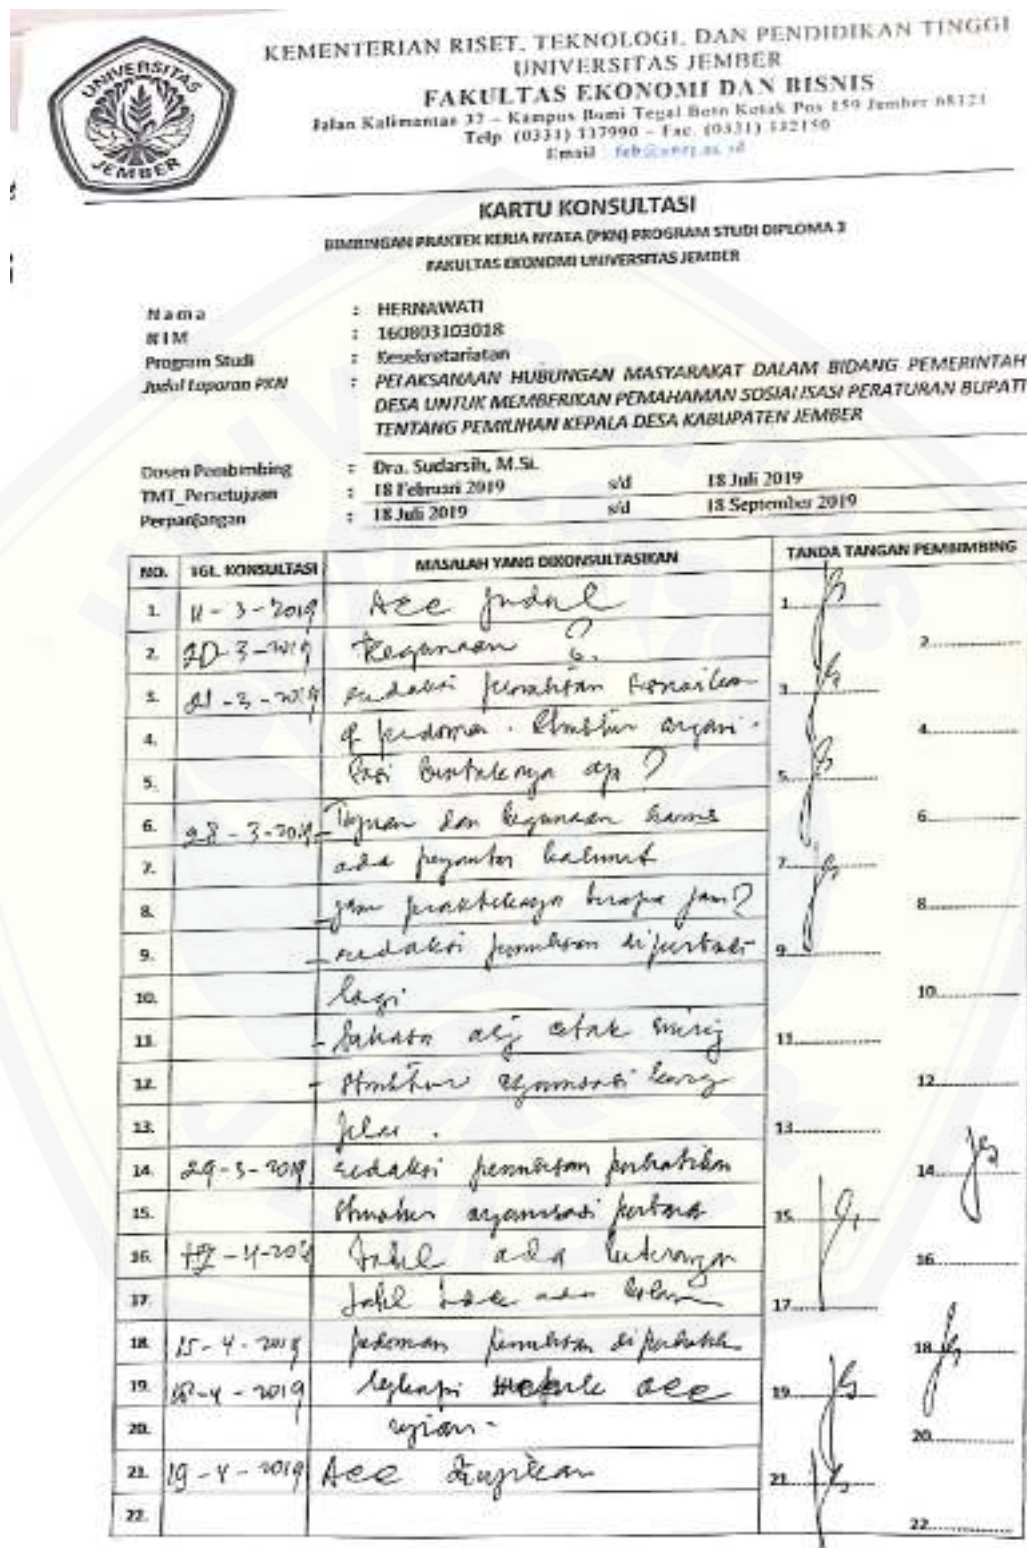 KEMENTERIAN RISET, TEKNOLOGI, DAN PENDIDIKAN TINGGI
UNIVERSITAS JEMBER
FAKULTAS EKONOMI DAN BISNIS
Jalan Kalimantan 37 – Kampus Bumi Tegal Boto Kotak Pos 159 Jember 68121
Telp. (0331) 337990 – Fac. (0331) 332150
Email :
UNIVERSITAS
JEMBER
KARTU KONSULTASI
BIMBINGAN PRAKTEK KERJA NYATA (PKN) PROGRAM STUDI DIPLOMA 3
FAKULTAS EKONOMI UNIVERSITAS JEMBER
Nama : HERNAWATI
NIM : 160803103018
Program Studi : Kesekretariatan
Judul Laporan PKN : PELAKSANAAN HUBUNGAN MASYARAKAT DALAM BIDANG PEMERINTAH
DESA UNTUK MEMBERIKAN PEMAHAMAN SOSIALISASI PERATURAN BUPATI
TENTANG PEMILIHAN KEPALA DESA KABUPATEN JEMBER
Dosen Pembimbing : Dra. Sudarsih, M.Si.
TMT_Persetujuan : 18 Februari 2019 s/d 18 Juli 2019
Perpanjangan : 18 Juli 2019 s/d 18 September 2019
NO. TGL. KONSULTASI MASALAH YANG DIKONSULTASIKAN TANDA TANGAN PEMBIMBING
1. 11 - 3 - 2019 Acc judul 1.
2. 20 - 3 - 2019 Kegunaan ? 2.
3. 21 - 3 - 2019 redaksi penulisan 3.
4. pedoman. Struktur organi- 4.
5. sasi bentuknya ap ? 5.
6. 28 - 3 - 2019 - Tujuan dan kegunaan harus 6.
7. ada pengantar kalimat 7.
8. - jam prakteknya berapa jam? 8.
9. - redaksi penulisan diperbaiki 9.
10. lagi 10.
11. - bahasa asig cetak miring 11.
12. - struktur organisasi kurang 12.
13. jelas. 13.
14. 29 - 3 - 2019 redaksi penulisan perhatikan 14.
15. struktur organisasi 15.
16. - 4 - 2019 Tabel ada keterangan 16.
17. tabel ada 17.
18. 15 - 4 - 2019 pedoman penulisan 18.
19. 18 - 4 - 2019 lengkapi acc 19.
20. ujian - 20.
21. 19 - 4 - 2019 Acc diujikan 21.
22. 22.